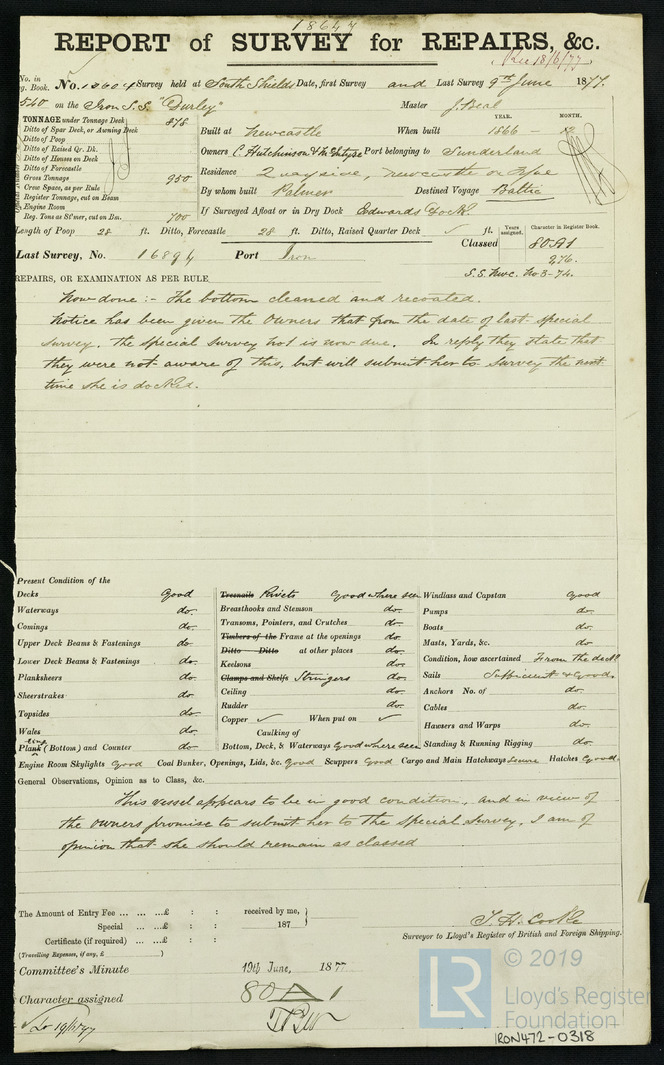 18647
REPORT of SURVEY for REPAIRS, &c.
Rec 18/6/77
No. in Reg. Book. No. Survey held at South Shields Date, first Survey and Last Survey 9th June 1877.
540 on the Iron S.S. "Durley" Master J. Beal
TONNAGE under Tonnage Deck 878
Ditto of Spar Deck, or Awning Deck
Ditto of Poop
Ditto of Raised Qr. Dk.
Ditto of Houses on Deck
Ditto of Forecastle
Gross Tonnage 950
Crew Space, as per Rule
Register Tonnage, cut on Beam
Engine Room
Reg. Tons as St'mer, cut on Bm. 700
YEAR. MONTH.
Built at Newcastle When built 1866 - 12
Owners C. Hutchinson & Port belonging to Sunderland
Residence Quayside, Newcastle on Tyne
By whom built Palmer Destined Voyage Baltic
If Surveyed Afloat or in Dry Dock Edwards Dock.
Length of Poop 28 ft. Ditto, Forecastle 28 ft. Ditto, Raised Quarter Deck ✓ ft.
Years assigned. Character in Register Book.
Classed 80A1
2,76.
Last Survey, No. 16894 Port Iron
S.S. Nwc. No 3-74.
REPAIRS, OR EXAMINATION AS PER RULE
Now done :- The bottom cleaned and recoated.
Notice has been given the Owners that from the date of last special
survey. the special survey No1 is now due. In reply they state that
they were not aware of this, but will submit her to survey the next
time she is docked.
Present Condition of the
Decks Good
Waterways do.
Comings do.
Upper Deck Beams & Fastenings do.
Lower Deck Beams & Fastenings do.
Planksheers do.
Sheerstrakes do.
Topsides do.
Wales do.
Plating (Bottom) and Counter do.
Treenails Rivets Good where seen
Breasthooks and Stemson do.
Transoms, Pointers, and Crutches do.
Timbers of the Frame at the openings do.
Ditto Ditto at other places do.
Keelsons do.
Clamps and Shelfs Stringers do.
Ceiling do.
Rudder do.
Copper ✓ When put on ✓
Caulking of
Bottom, Deck, & Waterways Good where seen
Windlass and Capstan Good
Pumps do.
Boats do.
Masts, Yards, &c. do.
Condition, how ascertained From the deck
Sails Sufficient & Good.
Anchors No. of do.
Cables do.
Hawsers and Warps do.
Standing & Running Rigging do.
Engine Room Skylights Good Coal Bunker, Openings, Lids, &c. Good Scuppers Good Cargo and Main Hatchways Secure Hatches Good.
General Observations, Opinion as to Class, &c.
This vessel appears to be in good condition, and in view of
the owners promise to submit her to the special survey, I am of
opinion that she should remain as classed
The Amount of Entry Fee ... ... ...£ : : received by me,
Special ... ...£ : : 187
Certificate (if required) ... ...£ : :
(Travelling Expenses, if any, £ )
T. H. Cooke
Surveyor to Lloyd's Register of British and Foreign Shipping.
Committee's Minute 19th June, 1877
Character assigned 80 A 1
Lo 19/6/77
LR © 2019
Lloyd's Register
Foundation
IRON472-0318